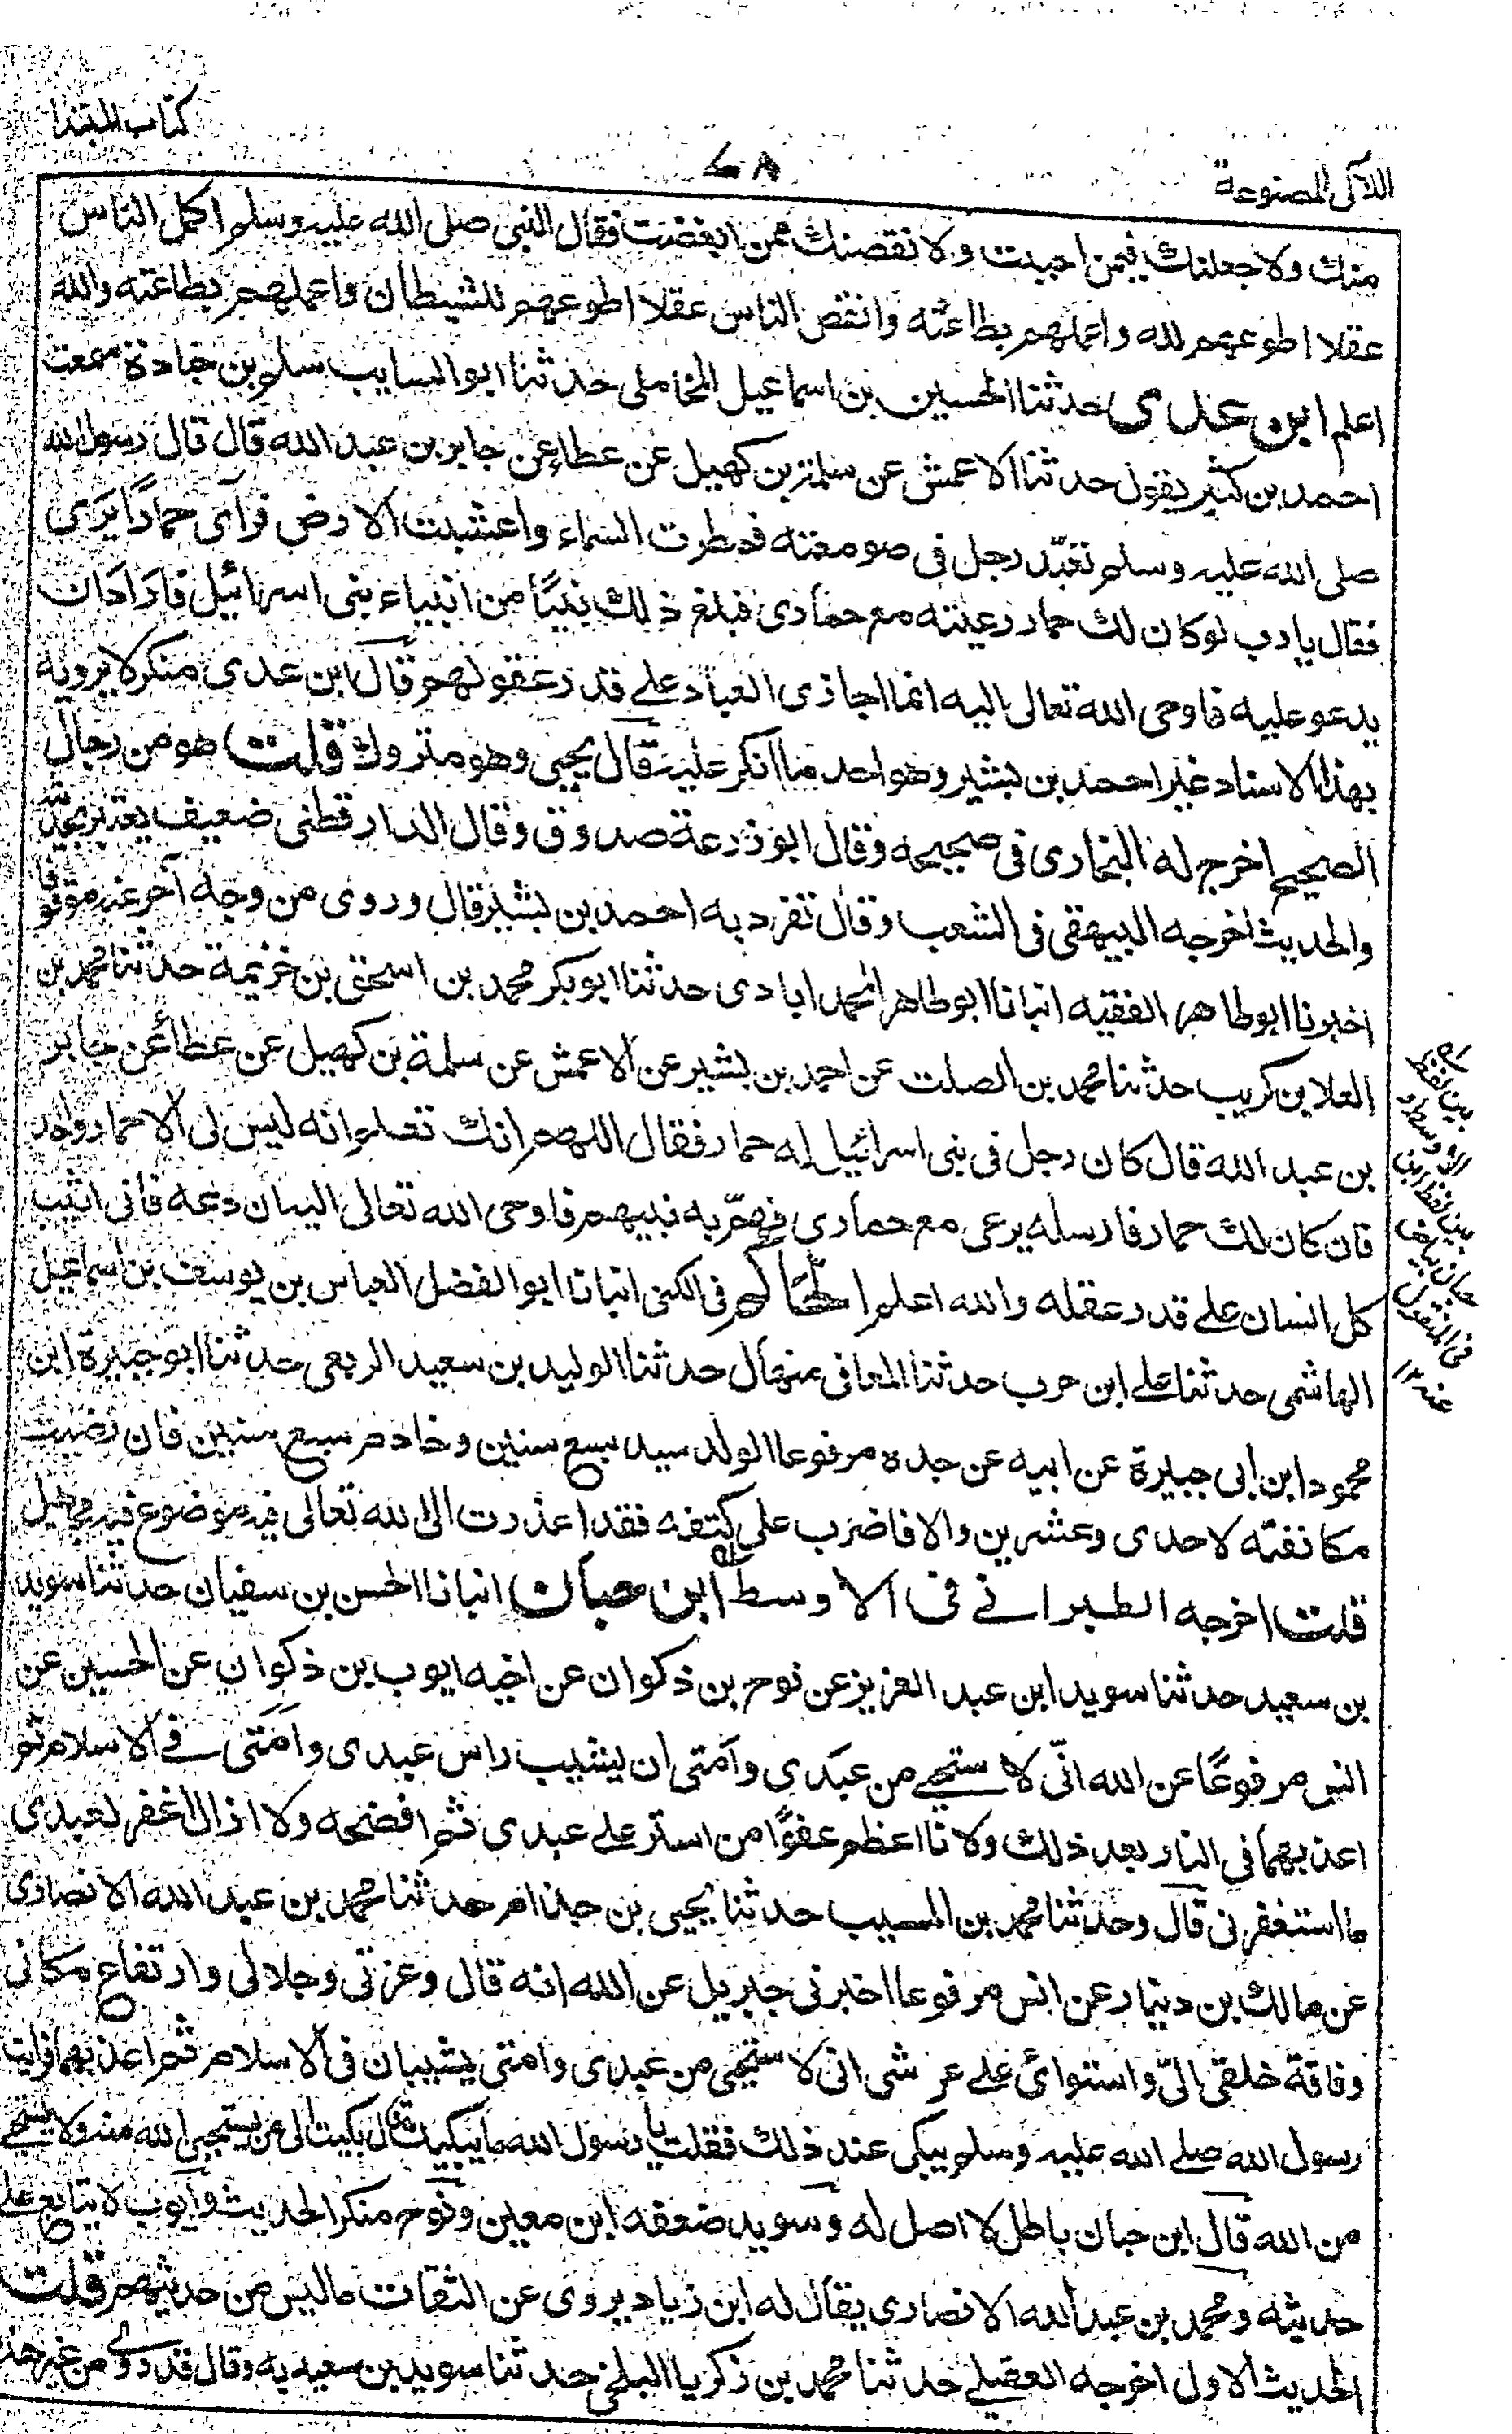 كتاب المبتدا
اللآلى المصنوعة
منك ولا جعلنك فيمن احببت ولا نقصنك ممن ابغضت فقال النبى صلى الله عليه وسلم اكمل الناس
عقلا اطوعهم لله واعملهم بطاعته وانقص الناس عقلا اطوعهم للشيطان واعملهم بطاعته والله
اعلم ابن عدى حدثنا الحسين بن اسماعيل المحاملى حدثنا ابو السايب سلم بن جنادة سمعت
احمد بن كثير يقول حدثنا الاعمش عن سلمة بن كهيل عن عطاء عن جابر بن عبد الله قال قال رسول الله
صلى الله عليه وسلم تعبد رجل فى صومعته فمطرت السماء واعشبت الارض فرآى حمارًا يرعى
فقال يا رب لو كان لك حمار رعيته مع حمارى فبلغ ذلك نبيًا من انبياء بنى اسرائيل فاراد ان
يدعو عليه فاوحى الله تعالى اليه انما اجازى العباد على قدر عقولهم قال ابن عدى منكر لا يرويه
بهذا الاسناد غير احمد بن بشير وهو احد ما انكر عليه قال يحيى وهو متروك قلت هو من رجال
الصحيح اخرج له البخارى فى صحيحه وقال ابو زرعة صدوق وقال الدارقطنى ضعيف يعتبر بحديثه
والحديث اخرجه البيهقى فى الشعب وقال تفرد به احمد بن بشير قال وروى من وجه آخر عنه موقوفا
اخبرنا ابو طاهر الفقيه انبانا ابو طاهر المحمد ابادى حدثنا ابو بكر محمد بن اسحق بن خزيمة حدثنا محمد بن
العلا بن كريب حدثنا محمد بن الصلت عن احمد بن بشير عن الاعمش عن سلمة بن كهيل عن عطاء عن جابر
بن عبد الله قال كان رجل فى بنى اسرائيل له حمار فقال اللهم انك تعلم انه ليس لى الا حمار واحد
فان كان لك حمار فارسله يرعى مع حمارى فهمّ به نبيهم فاوحى الله تعالى اليه ان دعه فانى اثيب
كل انسان على قدر عقله والله اعلم الحاكم فى الكنى انبانا ابو الفضل العباس بن يوسف بن اسماعيل
الهاشمى حدثنا على ابن حرب حدثنا المعافى منهال حدثنا الوليد بن سعيد الربعى حدثنا ابو جبيرة ابن
محمود ابن ابى جبيرة عن ابيه عن جده مرفوعا الولد سيد سبع سنين وخادم سبع سنين فان رضيت
مكانفته لاحدى وعشرين والا فاضرب على كتفه فقد اعذرت الى الله تعالى فيه موضوع فيه مجاهيل
قلت اخرجه الطبرانے فى الاوسط ابن حبان انبانا الحسن بن سفيان حدثنا سويد
بن سعيد حدثنا سويد ابن عبد العزيز عن نوح بن ذكوان عن اخيه ايوب بن ذكوان عن الحسين عن
انس مرفوعًا عن الله انّى لاستحيے من عبدى وامتى ان يشيب راس عبدى وامتى فے الاسلام ثم
اعذبهما فى النار بعد ذلك ولانا اعظم عفوًا من استر على عبدى ثم افضحه ولا ازال اغفر لعبدى
ما استغفرنى قال وحدثنا محمد بن المسيب حدثنا يحيى بن حذام حدثنا محمد بن عبد الله الانصارى
عن مالك بن دينار عن انس مرفوعا اخبرنى جبريل عن الله انه قال وعزتى وجلالى وارتفاع مكانى
وفاقة خلقى الىّ واستوائى على عرشى انى لاستحيى من عبدى وامتى يشيبان فى الاسلام ثم اعذبهما فرايت
رسول الله صلے الله عليه وسلم يبكى عند ذلك فقلت يا رسول الله ما يبكيك قال بكيت لمن يستحيى الله منه ولا يستحيے
من الله قال ابن حبان باطل لا اصل له وسويد ضعفه ابن معين ونوح منكر الحديث وايوب لا يتابع على
حديثه ومحمد بن عبد الله الانصارى يقال له ابن زياد يروى عن الثقات ما ليس من حديثهم قلت
الحديث الاول اخرجه العقيلے حدثنا محمد بن زكريا البلخى حدثنا سويد بن سعيد به وقال قد روى من غير
بين لفظ
الاوسط و
بين لفظ ابن
حبان بياض
فى المنقول
عنه ١٢